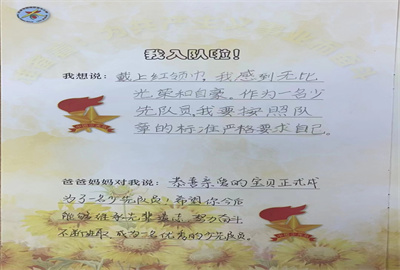 我入队啦！
我想说：戴上红领巾，我感到无比
光荣和自豪。作为一名少
先队员，我要按照队
章的标准严格要求自己。
爸爸妈妈对我说：恭喜亲爱的宝贝正式成
为了一名少先队员，希望你今后
能够继承先辈遗志，努力向上
不断进取，成为一名优秀的少先队员。